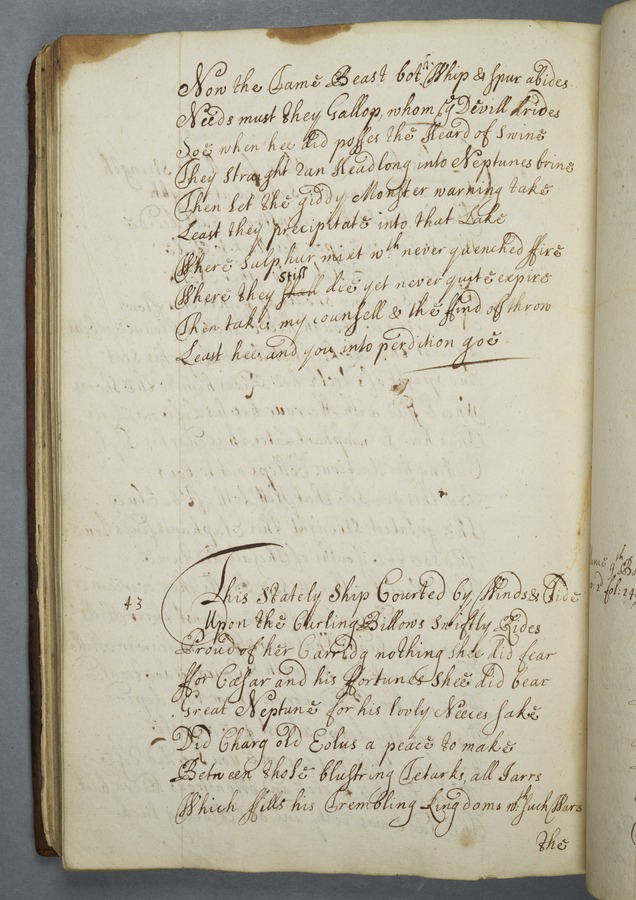 Now the Tame Beast both Whip & spur abides
Needs must they Gallop, whom ye Devill drives
Soe when hee did posses the Heard of Swine
They straight ran Headlong into Neptunes brine
Then let the giddy Monster warning take
Least they precipitate into that Lake
Where Sulphur mixt wth never quenched ffire
Where they still die yet never quite expire
Then take my counsell & the ffind of throw
Least hee and you into perdition goe
43
This Stately Ship Courted by Winds & Tide
Upon the Curling Billows swiftly Rides
Proud of her Carridg nothing shee did fear
ffor Cæsar and his ffortunes shee did bear
Great Neptune for his lovly Neeces sake
Did Charg old Eolus a peace to make
Between those blustring Tetarks, all Jarrs
Which ffills his Trembling Kingdoms wth such Wars
the